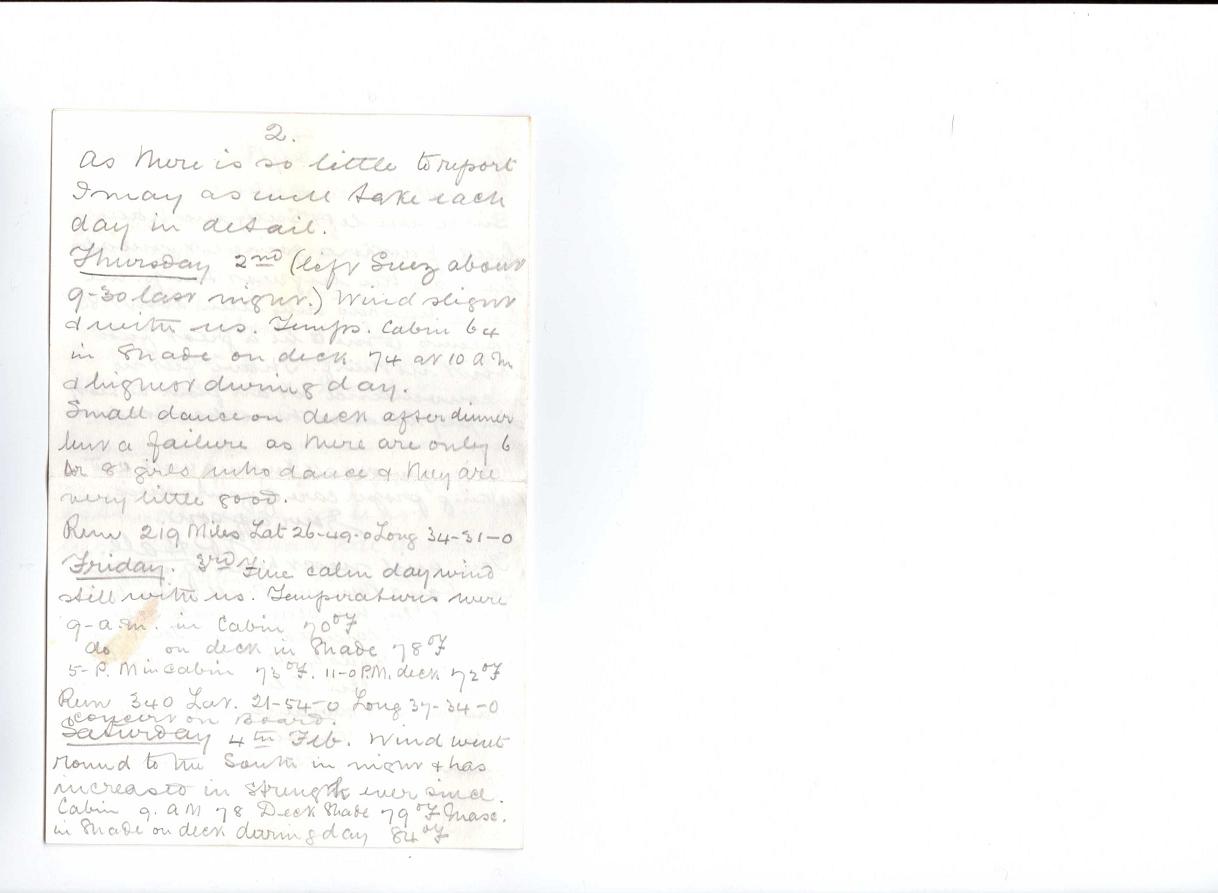 2.
As there is so little to report
I may as well take each
day in detail.
Thursday 2nd (left Suez about
9-30 last night.) Wind slight
& with us. Temps. Cabin 64
in Shade on deck 74 at 10 A M
& higher during day.
Small dance on deck after dinner
but a failure as there are only 6
or 8 girls who dance & they are
very little good.
Run 219 Miles Lat 26-49-0 Long 34-31-0
Friday. 3rd Fine calm day wind
still with us. Temperatures were
9-a.m. in Cabin 70°F
do on deck in Shade 78°F
5-P.M in Cabin 73°F. 11-0 P.M. deck 72°F
Run 340 Lat. 21-54-0 Long 37-34-0
Concert on Board.
Saturday 4th Feb. Wind went
round to the South in night & has
increased in strength ever since.
Cabin 9. A M 78 Deck Shade 79°F Max.
in Shade on deck during day 84°F